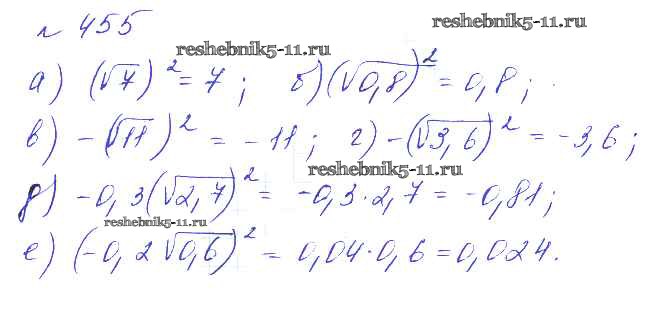 № 455
reshebnik5-11.ru
reshebnik5-11.ru
а) (√7)² = 7; б) (√0,8)² = 0,8;
в) -(√11)² = -11; г) -(√3,6)² = -3,6;
reshebnik5-11.ru
д) -0,3(√2,7)² = -0,3·2,7 = -0,81;
reshebnik5-11.ru
е) (-0,2√0,6)² = 0,04·0,6 = 0,024.